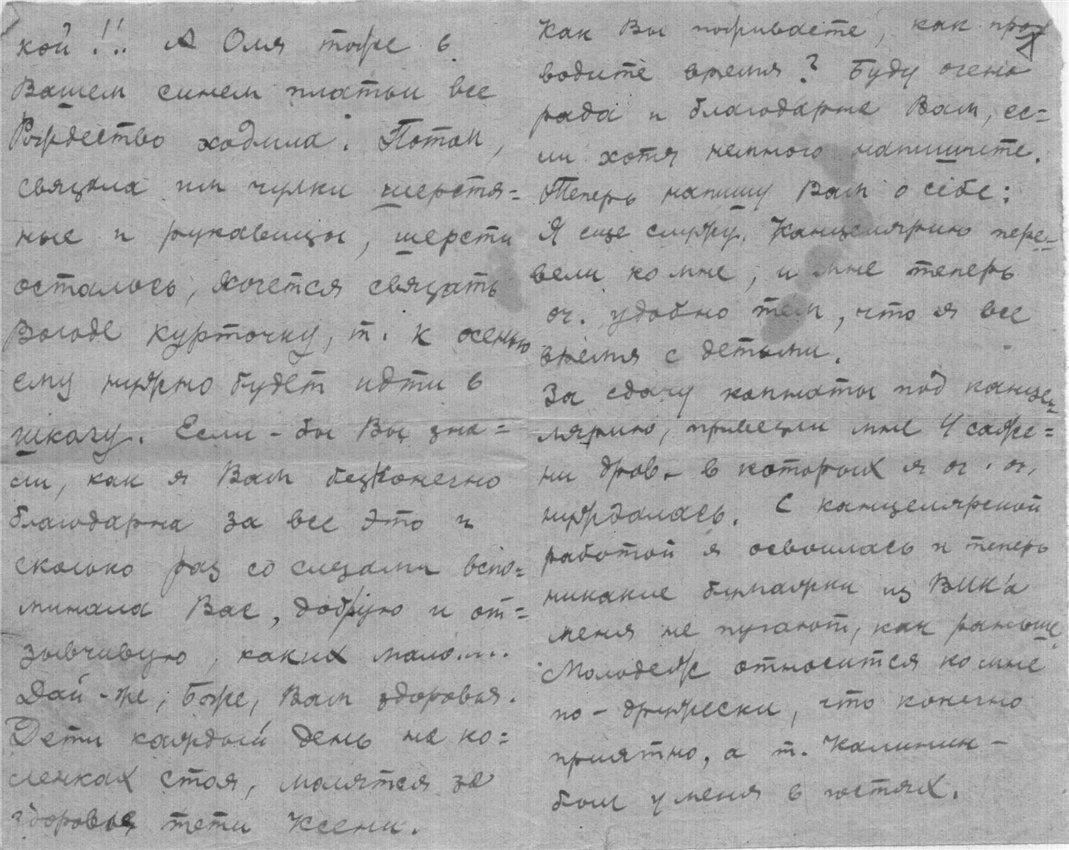 кой!!. А Оля тоже в
Вашем синем платьи все
Рождество ходила. Потом,
связала им чулки шерстя=
ные и рукавицы, шерсти
осталось, хочется связать
Володе курточку, т. к осенью
ему нужно будет идти в
школу. Если-бы Вы зна=
ли, как я Вам безконечно
благодарна за все это и
сколько раз со слезами вспо=
минала Вас, добрую и от=
зывчивую, каких мало....
Дай-же, Боже, Вам здоровья.
Дети каждый день на ко=
ленках стоя, молятся за
здоровье тети Ксени.
Как Вы поживаете, как про
водите время? Буду очень
рада и благодарна Вам, ес=
ли хотя немного напишите.
Теперь напишу Вам о себе:
Я еще служу. Канцелярию пере=
вели ко мне, и мне теперь
оч. удобно тем, что я все
время с детьми.
За сдачу комнаты под канце=
лярию, привезли мне 4 саже=
ни дров- в которых я оч. оч.
нуждалась. С канцелярской
работой я освоилась и теперь
никакие бумажки из ВИК'а
меня не пугают, как раньше.
Молодежь относится ко мне
по-дружески, что конечно
приятно, а т. Калинин-
был у меня в гостях.